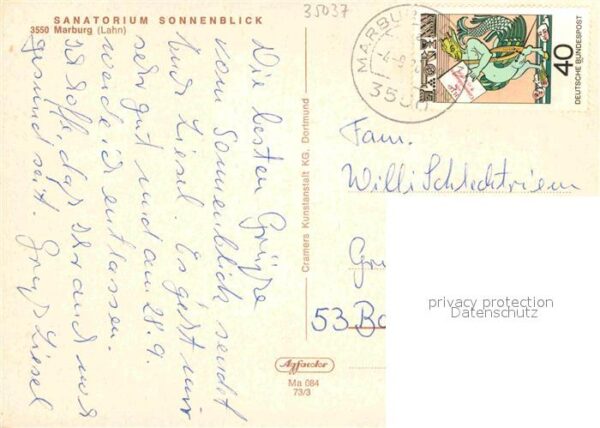 SANATORIUM SONNENBLICK
3550 Marburg (Lahn)
35037
Die besten Grüße
vom Sonnenblick sendet
Euch Liesel. Es geht mir
sehr gut und am 28.9.
werde ich entlassen.
Ich hoffe das Ihr auch
gesund seit. Gruß Liesel
Cramers Kunstanstalt KG. Dortmund
Agfacolor
Ma 084
73/3
MARBU
355
40
DEUTSCHE BUNDESPOST
Fam.
Willi Schlechtriem
53
privacy protection
Datenschutz